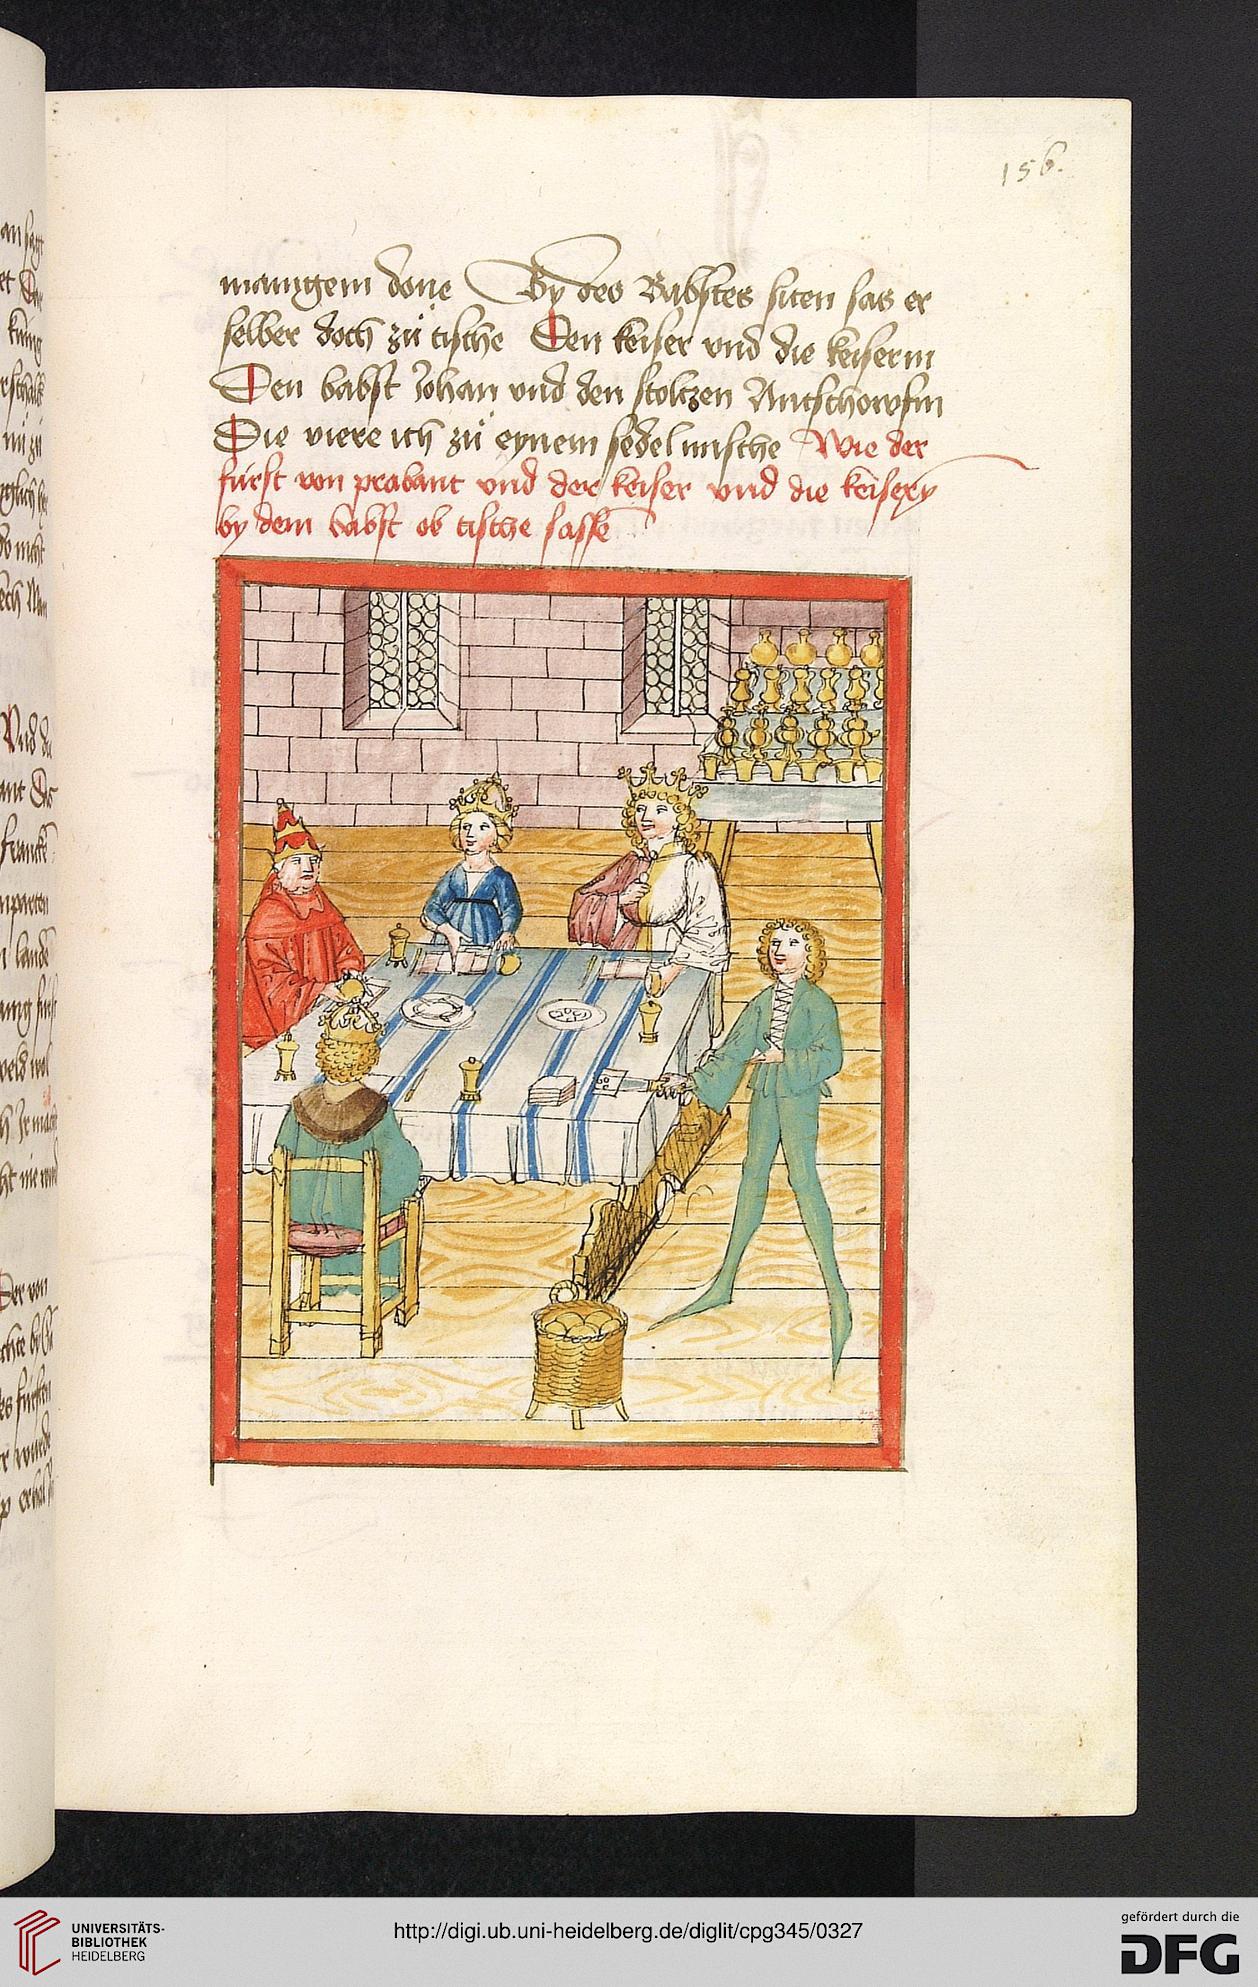 156.
manigem done By des Babstes siten sas er
selber doch zü tische Den keiser vnd die keiserin
Den babst Johan vnd den stoltzen Antschowfin
Die viere ich zü eynem sedel mische Wie der
fürst von prabant vnd der keiser vnd die keisery
by dem babst ob tische sasse
UNIVERSITÄTS-
BIBLIOTHEK
HEIDELBERG
http://digi.ub.uni-heidelberg.de/diglit/cpg345/0327
gefördert durch die
DFG